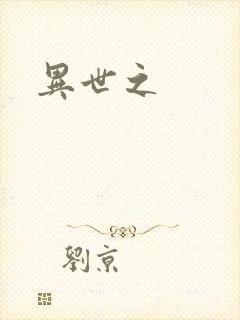 異世之
劉京